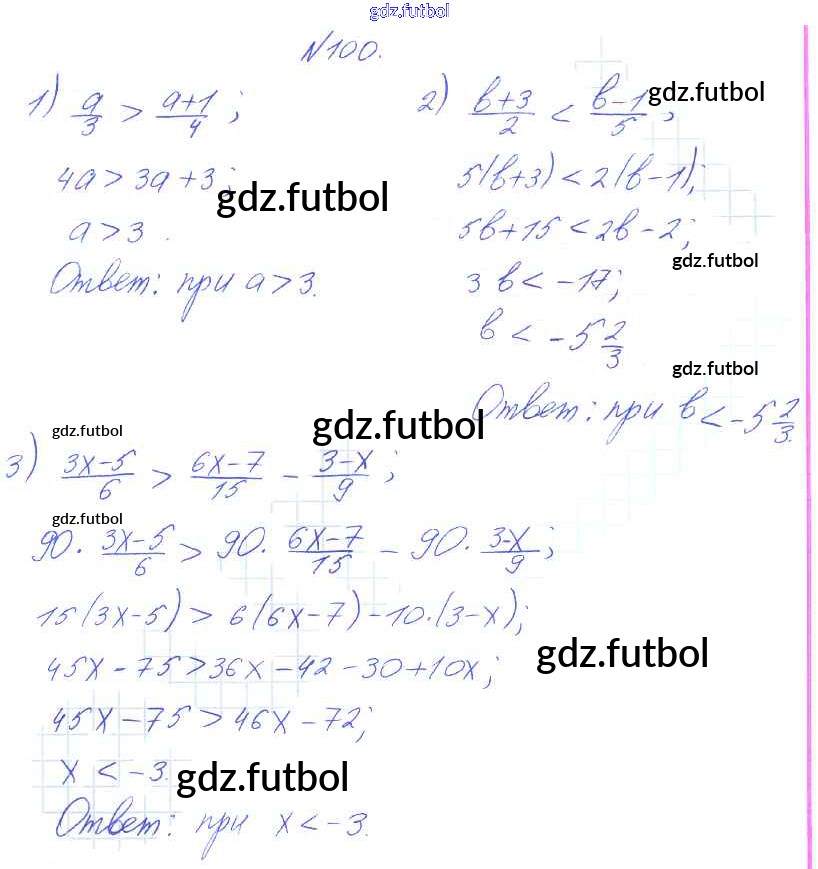 gdz.futbol
№100.
1) a/3 > (a+1)/4 ;
4a > 3a + 3 ;
gdz.futbol
a > 3 .
Ответ: при a > 3.
2) (b+3)/2 < (b-1)/5 ;
gdz.futbol
5(b+3) < 2(b-1);
5b+15 < 2b-2;
gdz.futbol
3b < -17;
b < -5 2/3
gdz.futbol
Ответ: при b < -5 2/3.
gdz.futbol
gdz.futbol
3) (3x-5)/6 > (6x-7)/15 - (3-x)/9 ;
gdz.futbol
90· (3x-5)/6 > 90· (6x-7)/15 - 90· (3-x)/9 ;
15(3x-5) > 6(6x-7)-10·(3-x);
gdz.futbol
45x-75 > 36x-42-30+10x;
45x-75 > 46x-72;
x < -3.
gdz.futbol
Ответ: при x < -3.